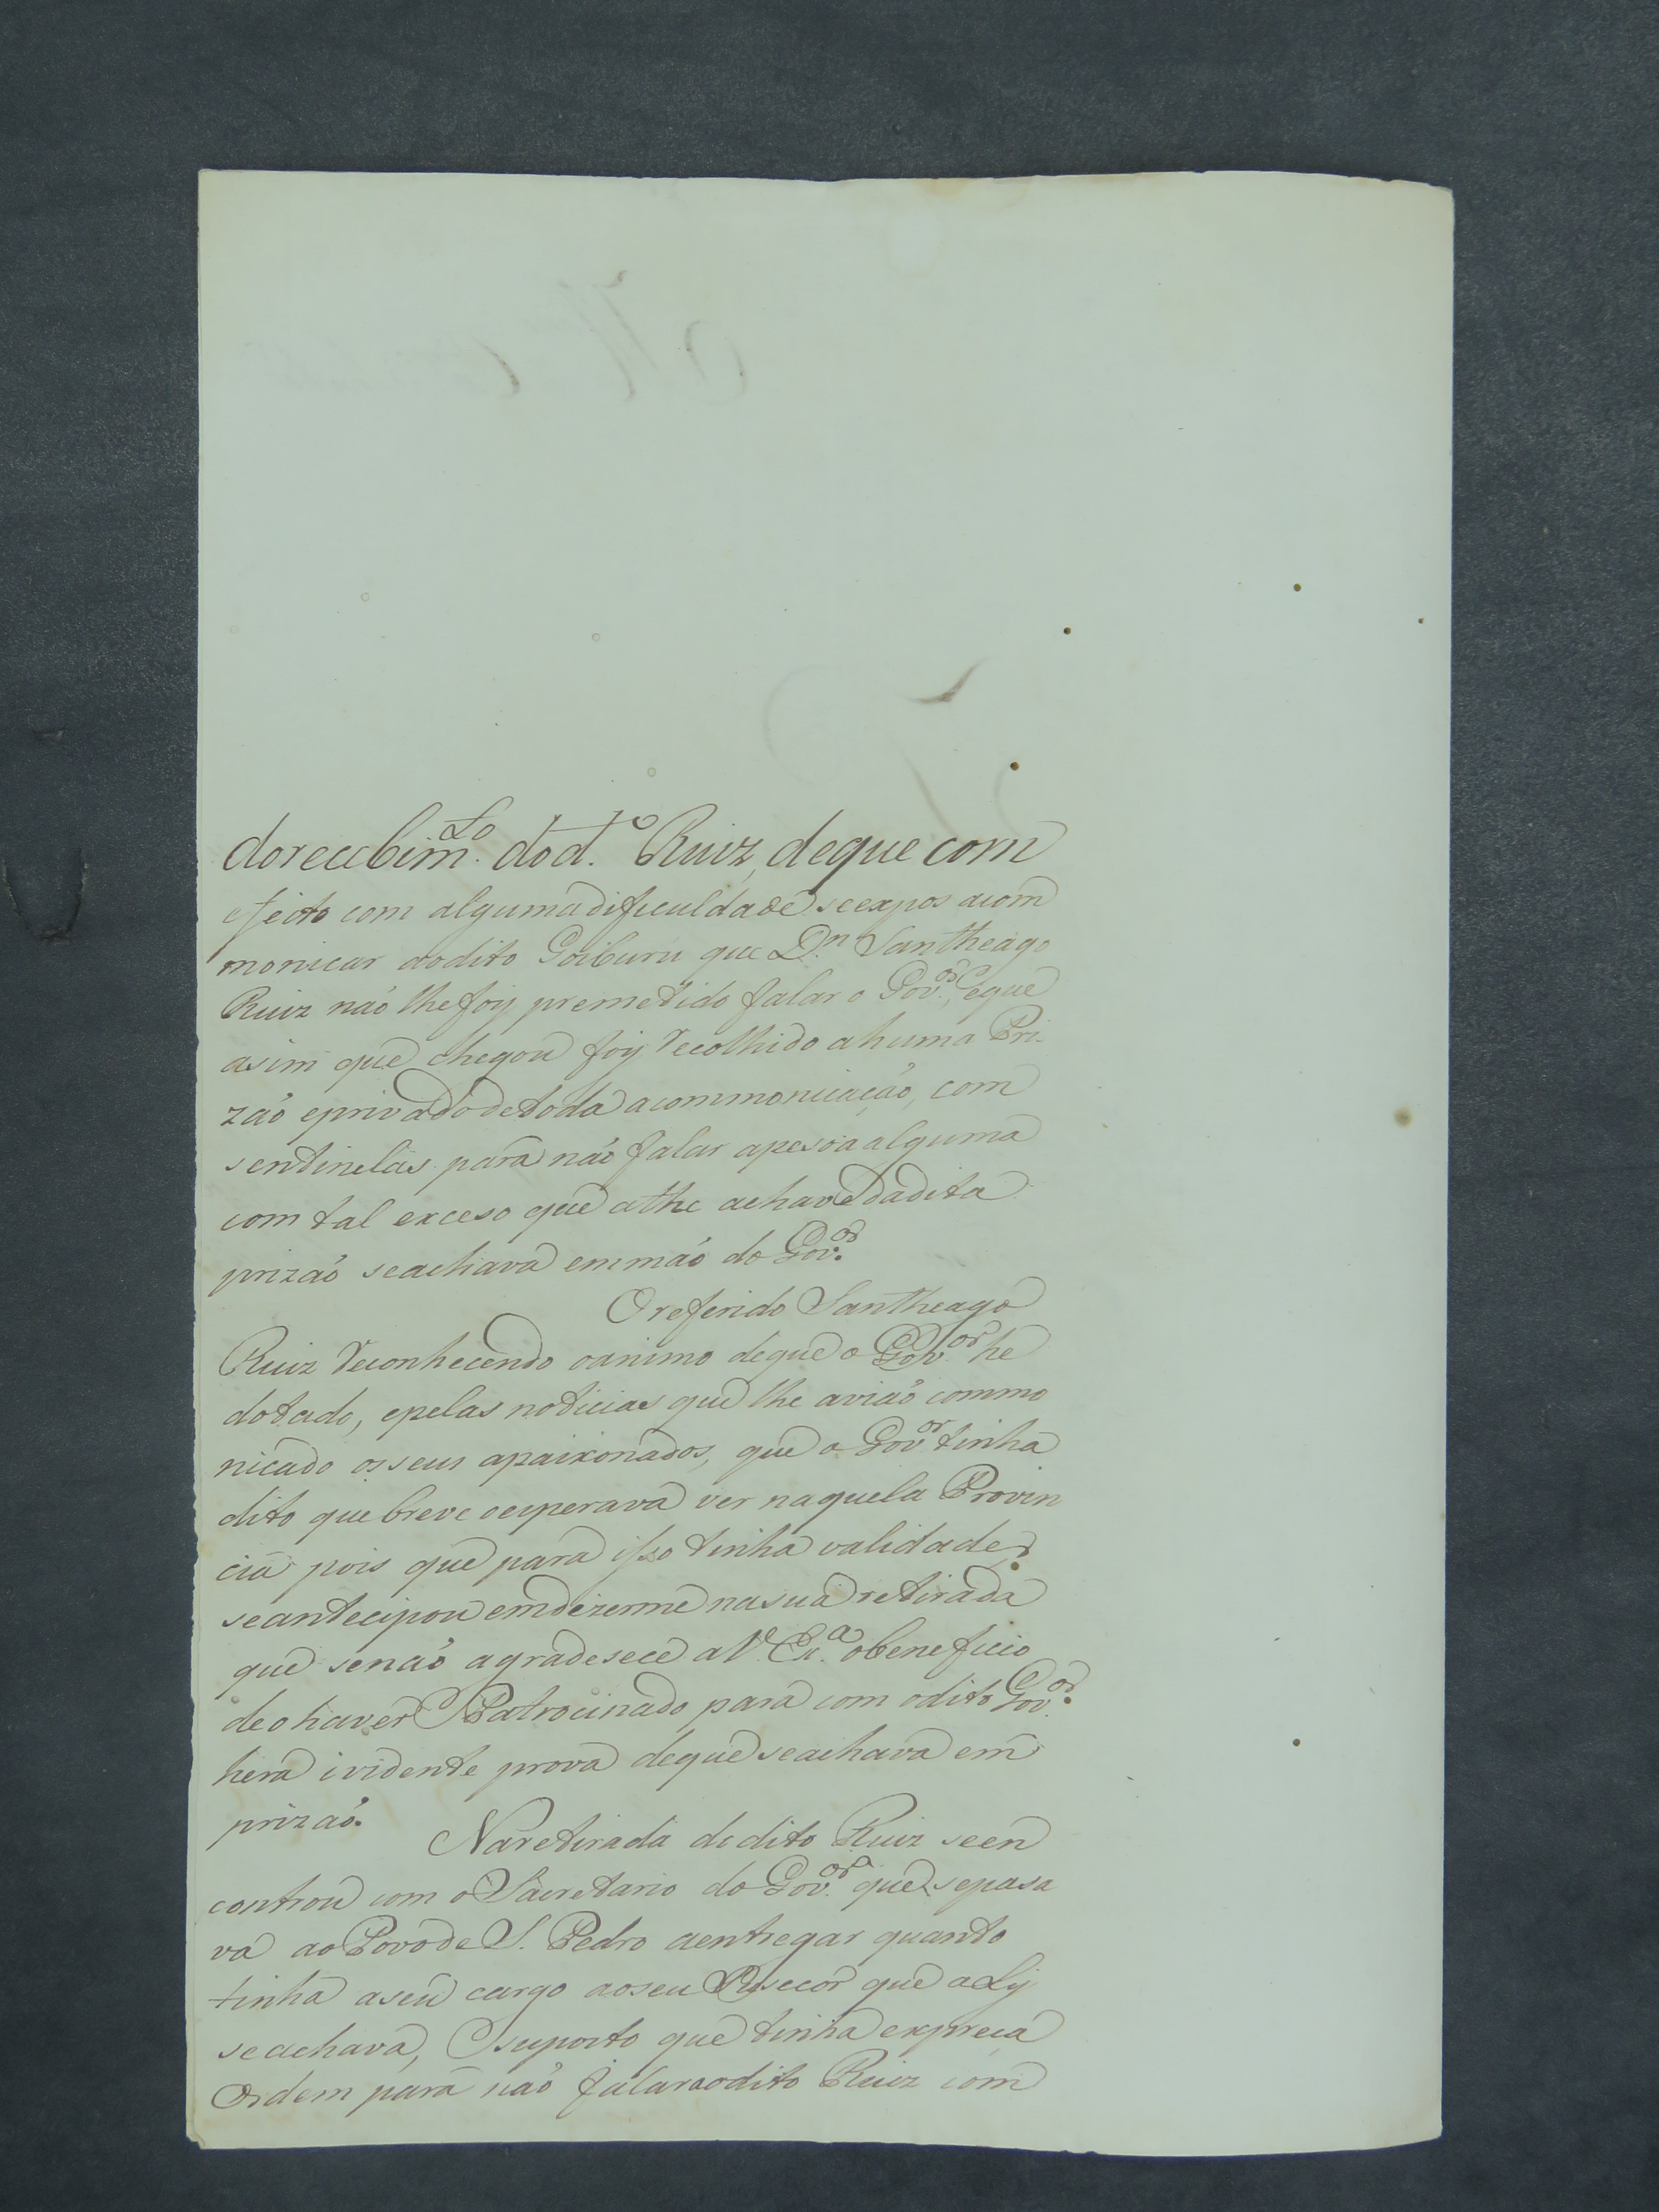 dorecebim.to do d.to Ruiz, deque com
efeito com algumadificuldade seexpos acom
monicar aodito Goiburu que D.n Santheago
Ruiz naõ lhefoy premetido falar o Gov.or, eque
asim que chegou foy recolhido ahuma Pri-
zaõ eprivadodetoda acommonicação, com
sentinelas para naõ falar apesoa alguma
com tal exceso que athe achave dadita
prizaõ seachava emmaõ do Gov.or
Oreferido Santheago
Ruiz reconhecendo oanimo deque o Gov.or he
dotado, epelas noticias que lhe aviaõ commo
nicado osseus apaixonados, que o Gov.or tinha
dito que breve oesperava ver naquela Provin
cia pois que para isso tinha validades
seantecipou emdizerme nasua retirada
que senaõ agradesece a V. Ex.a obeneficio
deohaver Patrocinado para com odito Gov.or
hera ividente prova deque seachava em
prizaõ.
Naretirada do dito Ruiz seen
controu com o Sacretario do Gov.or que sepasa
va ao Povo de S. Pedro aentregar quanto
tinha aseu cargo aoseu Susecor que aly
seachava, Suposto que tinha expreça
Ordem para naõ falaraodito Ruiz com